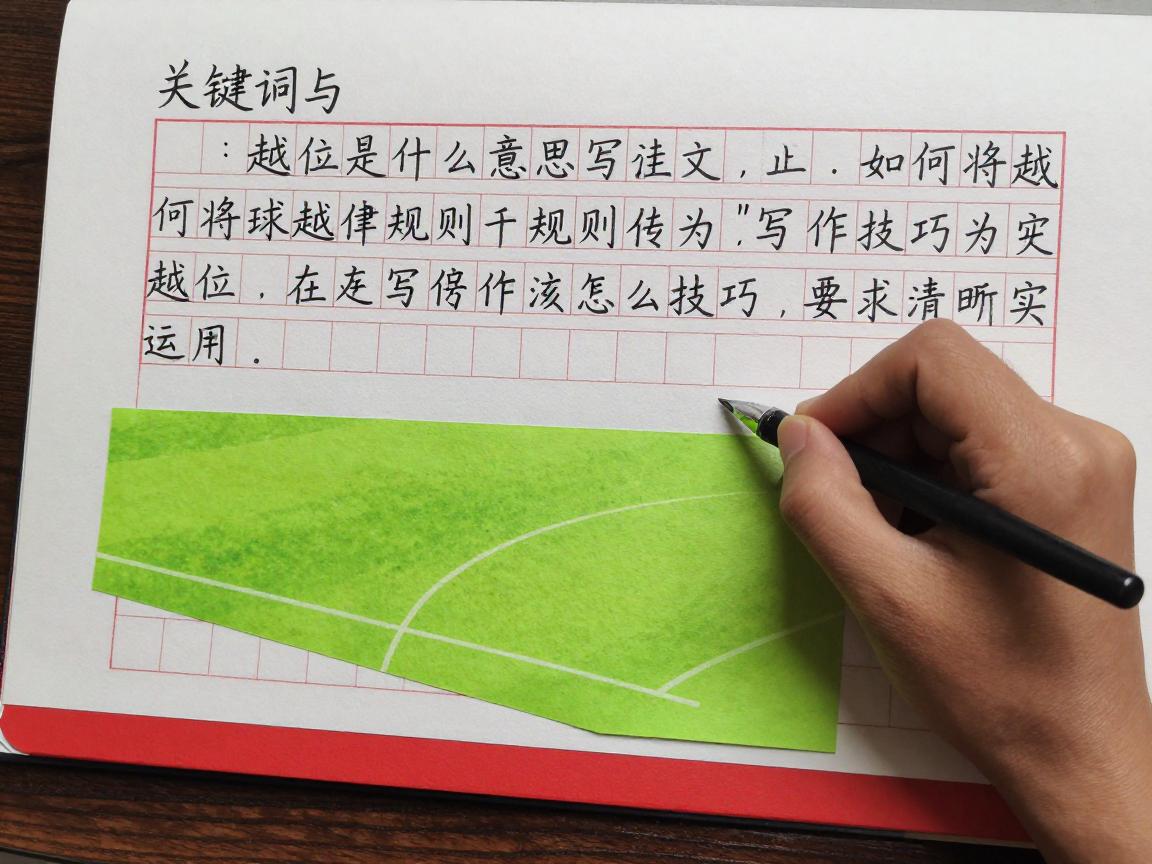 关键词与
：越位是什么意思写洼文，止．如何将越
何将球越律规则千规则传为〃.写作技巧为实
越位，在写傍作该怎么技巧，要求清晰实
运用．